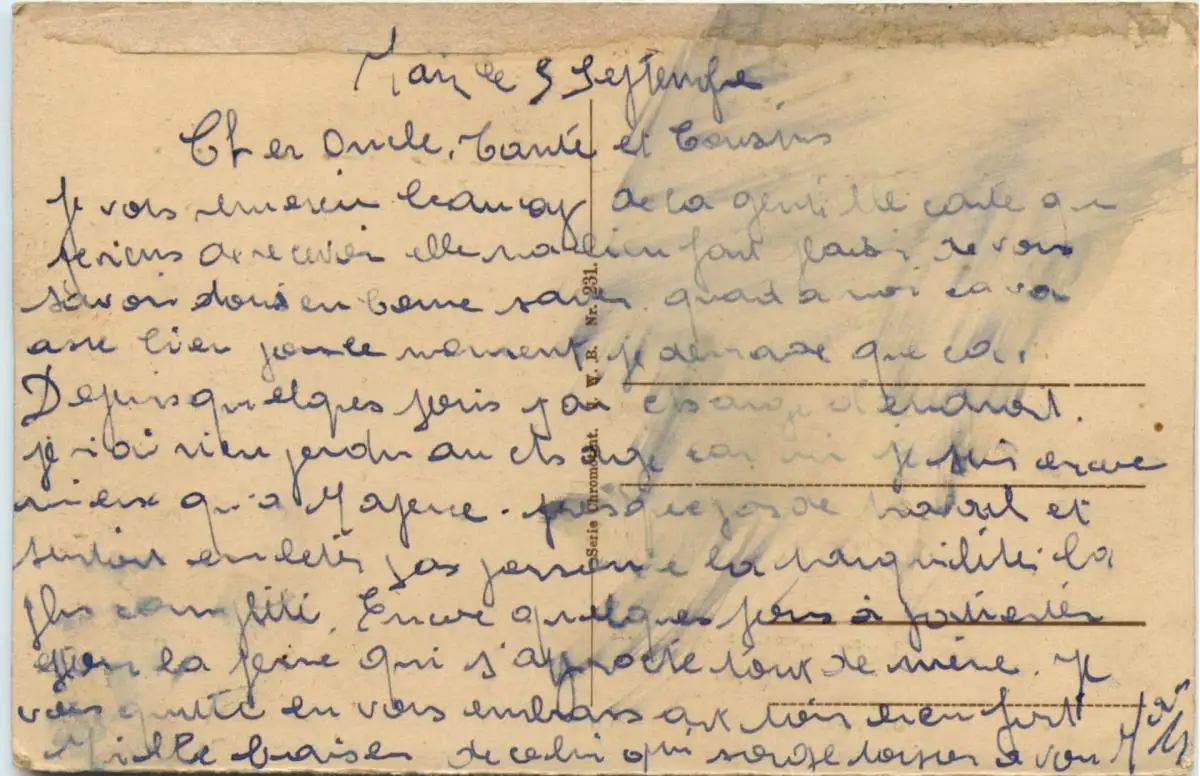 le 5 Septembre
Cher Oncle, Tante et Cousins
Je vous remercie beaucoup de la gentille carte que
je viens de recevoir elle m'a bien fait plaisir de vous
savoir tous en bonne santé. quand a moi ça va
asse bien pour le moment, je demande que ça.
Depuis quelques jours j'ai changé d'endroit.
je n'ai rien perdu au change car ici je suis encore
mieux qu'a presque pas de travail et
surtout pas par la tranquilité la
plus complète. Encore quelques jours à patienter
la qui s'approche tout de même. Je
vous quitte en vous embrassant tous bien fort
Mille baisers de celui qui songe a vous
Serie Chromocint. W. B. Nr. 231.